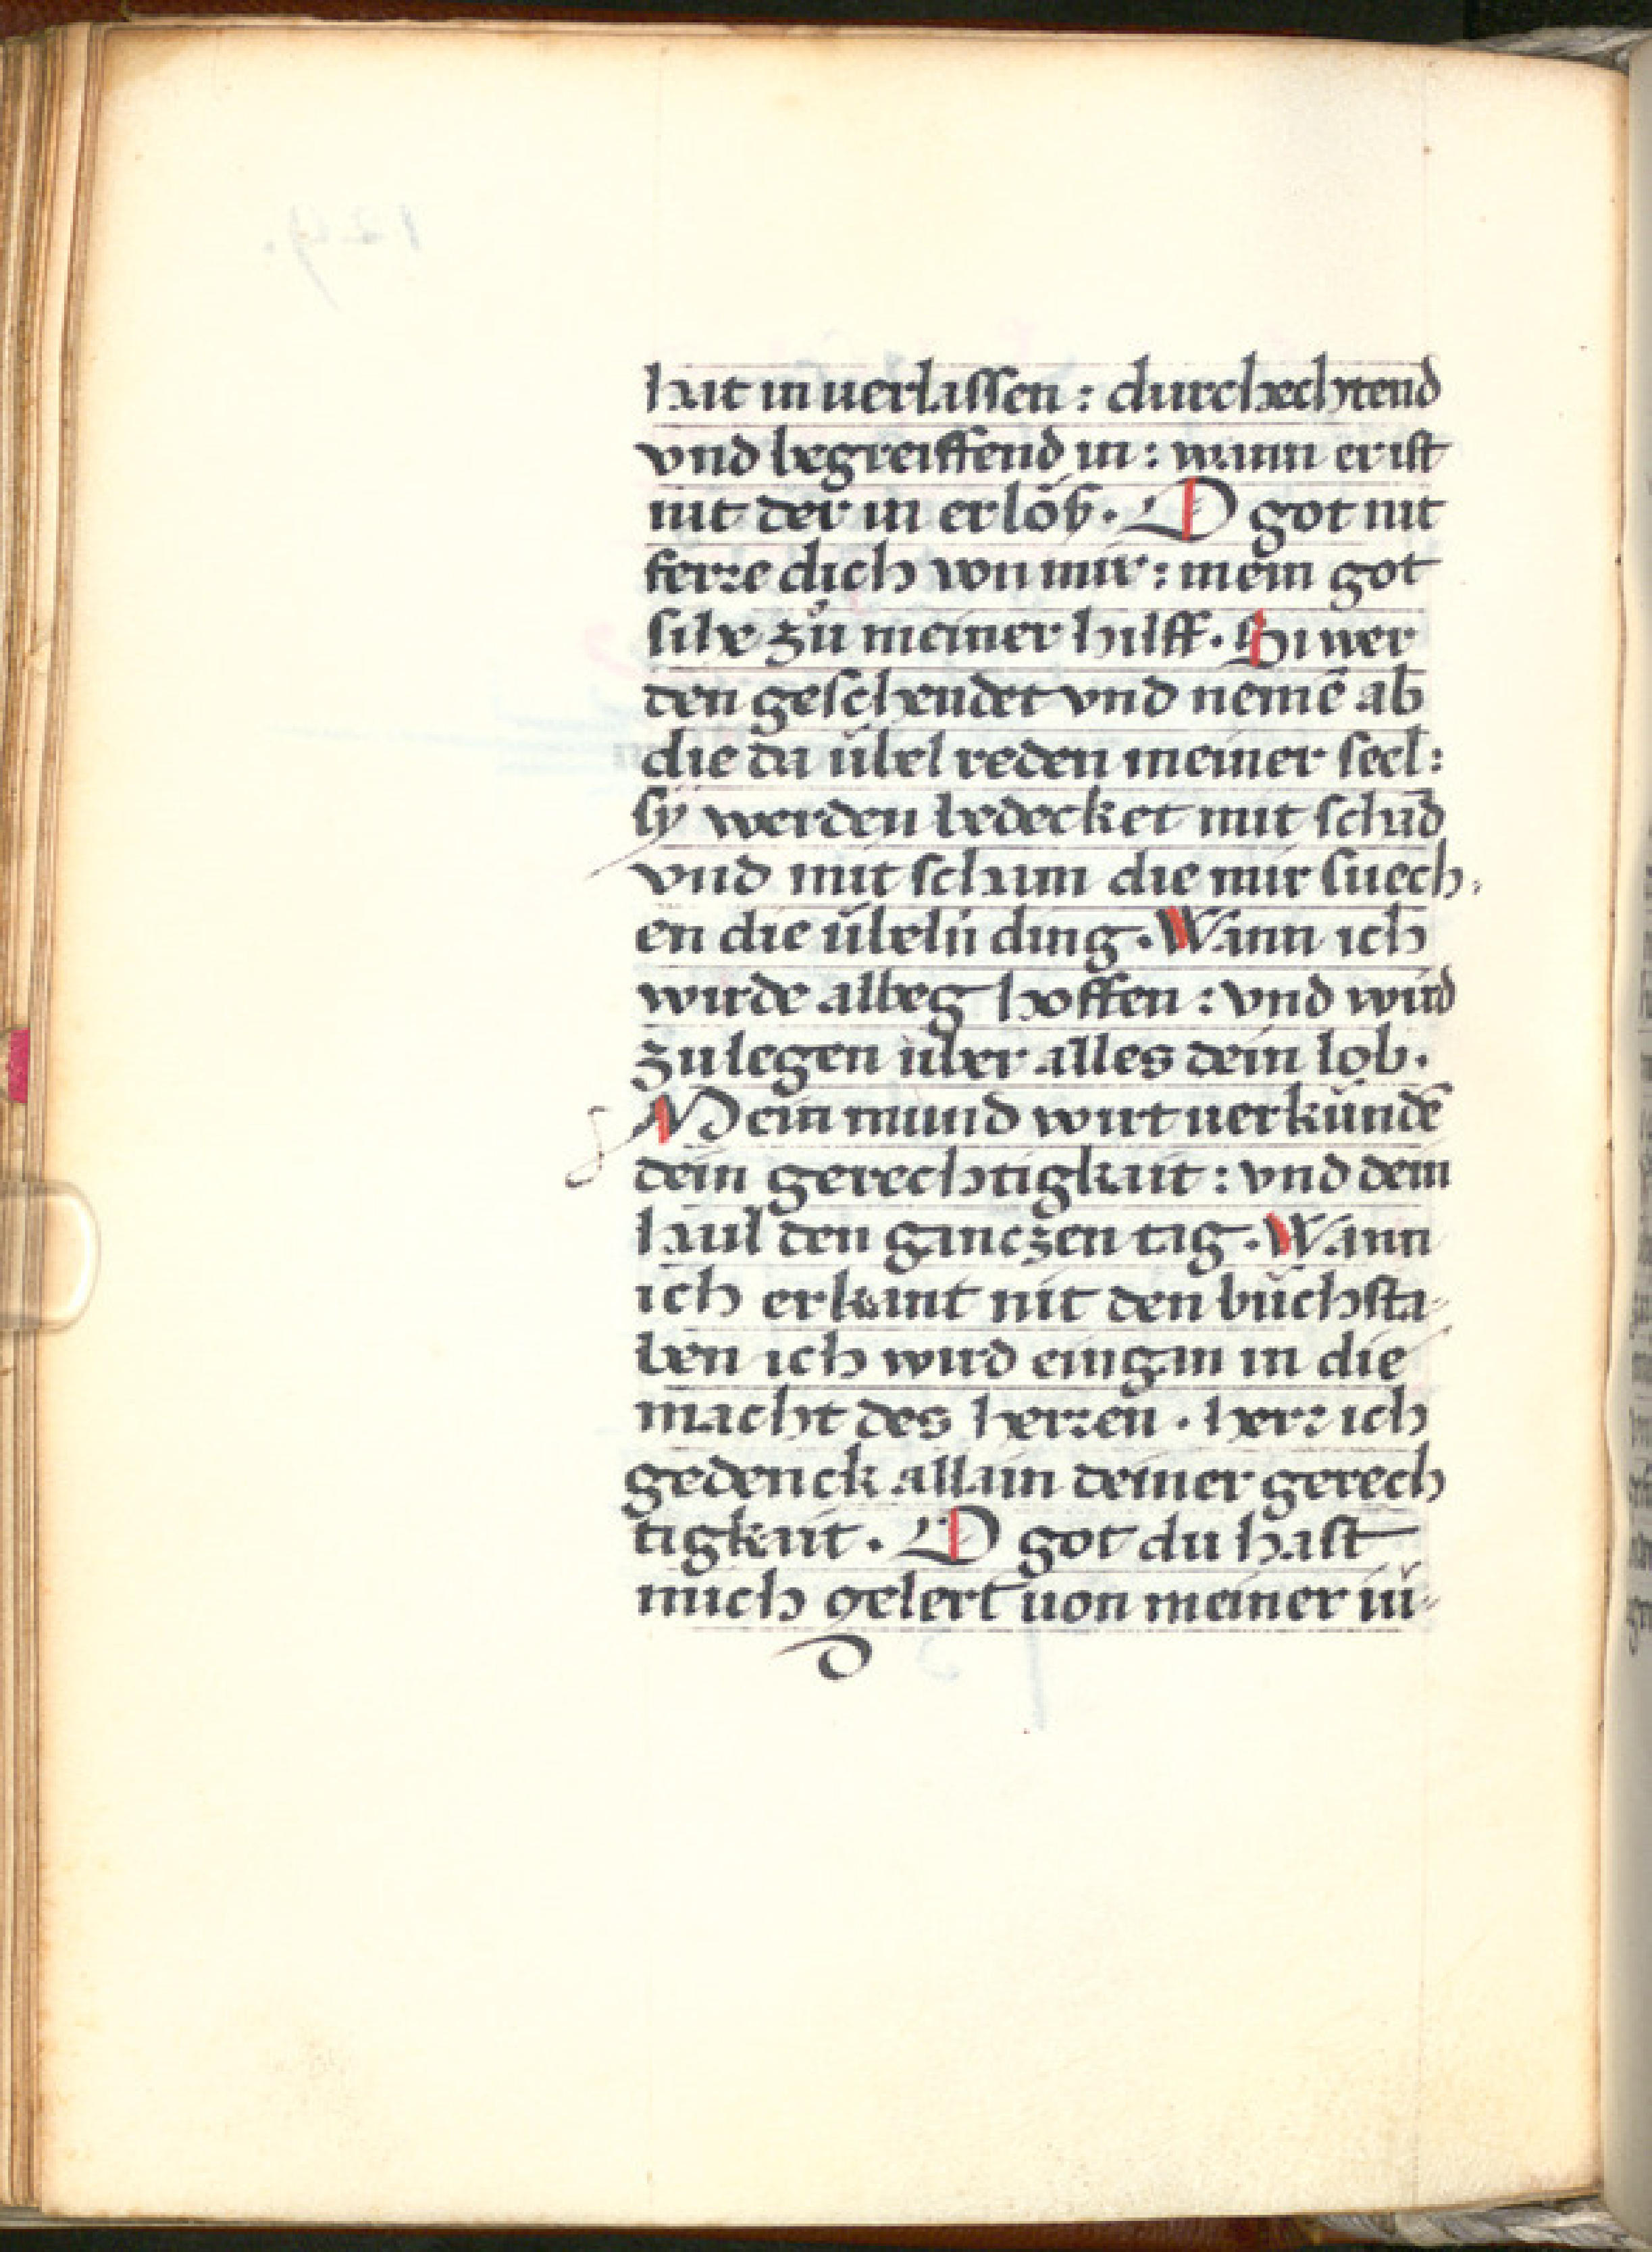 hat in uerlassen : durchechtend
vnd begreiffend in : wann er ist
nit der in erlöß · O got nit
ferre dich von mir : mein got
sihe zů meiner hilff · Si wer
den geschendet vnd nemē ab
die da übel reden meiner seel :
sÿ werden bedecket mit schād
vnd mit scham die mir suech,
en die übelü ding · Wann ich
wirde albeg hoffen : vnd wird
zulegen über alles dein lob ·
Mein mund wirt uerkündē
dein gerechtigkait : vnd dein
hail den ganczen tag · Wann
ich erkant nit den bůchsta-
ben ich wird eingan in die
macht des herren · herr ich
gedenck allain deiner gerech
tigkait · O got du hast
mich gelert uon meiner iu-
d